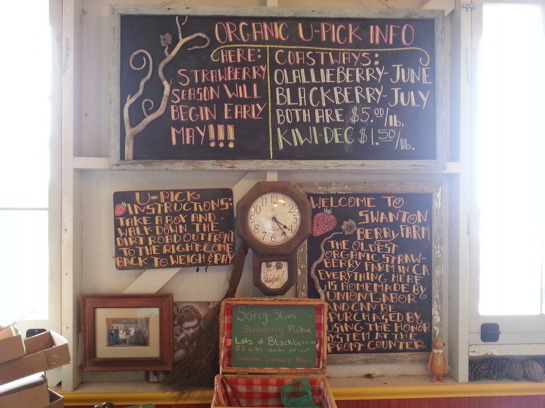 ORGANIC U-PICK INFO
HERE:
STRAWBERRY
SEASON WILL
BEGIN EARLY
MAY!!!
COASTWAYS:
OLALLIEBERRY-JUNE
BLACKBERRY-JULY
BOTH ARE $5.00/lb.
KIWI-DEC $1.50/lb.
U-PICK
INSTRUCTIONS:
TAKE A BOX AND
WALK DOWN THE
DIRT ROAD OUT FRONT
TO THE RIGHT. COME
BACK TO WEIGH & PAY
WELCOME TO
SWANTON
BERRY FARM
THE OLDEST
ORGANIC STRAW-
BERRY FARM IN CA.
EVERYTHING HERE
IS HOMEMADE BY
UNION LABOR
AND CAN BE
PURCHASED BY
USING THE HONOR
SYSTEM AT THE
FRONT COUNTER
Sorry Slim
Strawberry Pickin'
Lots of Blackberries